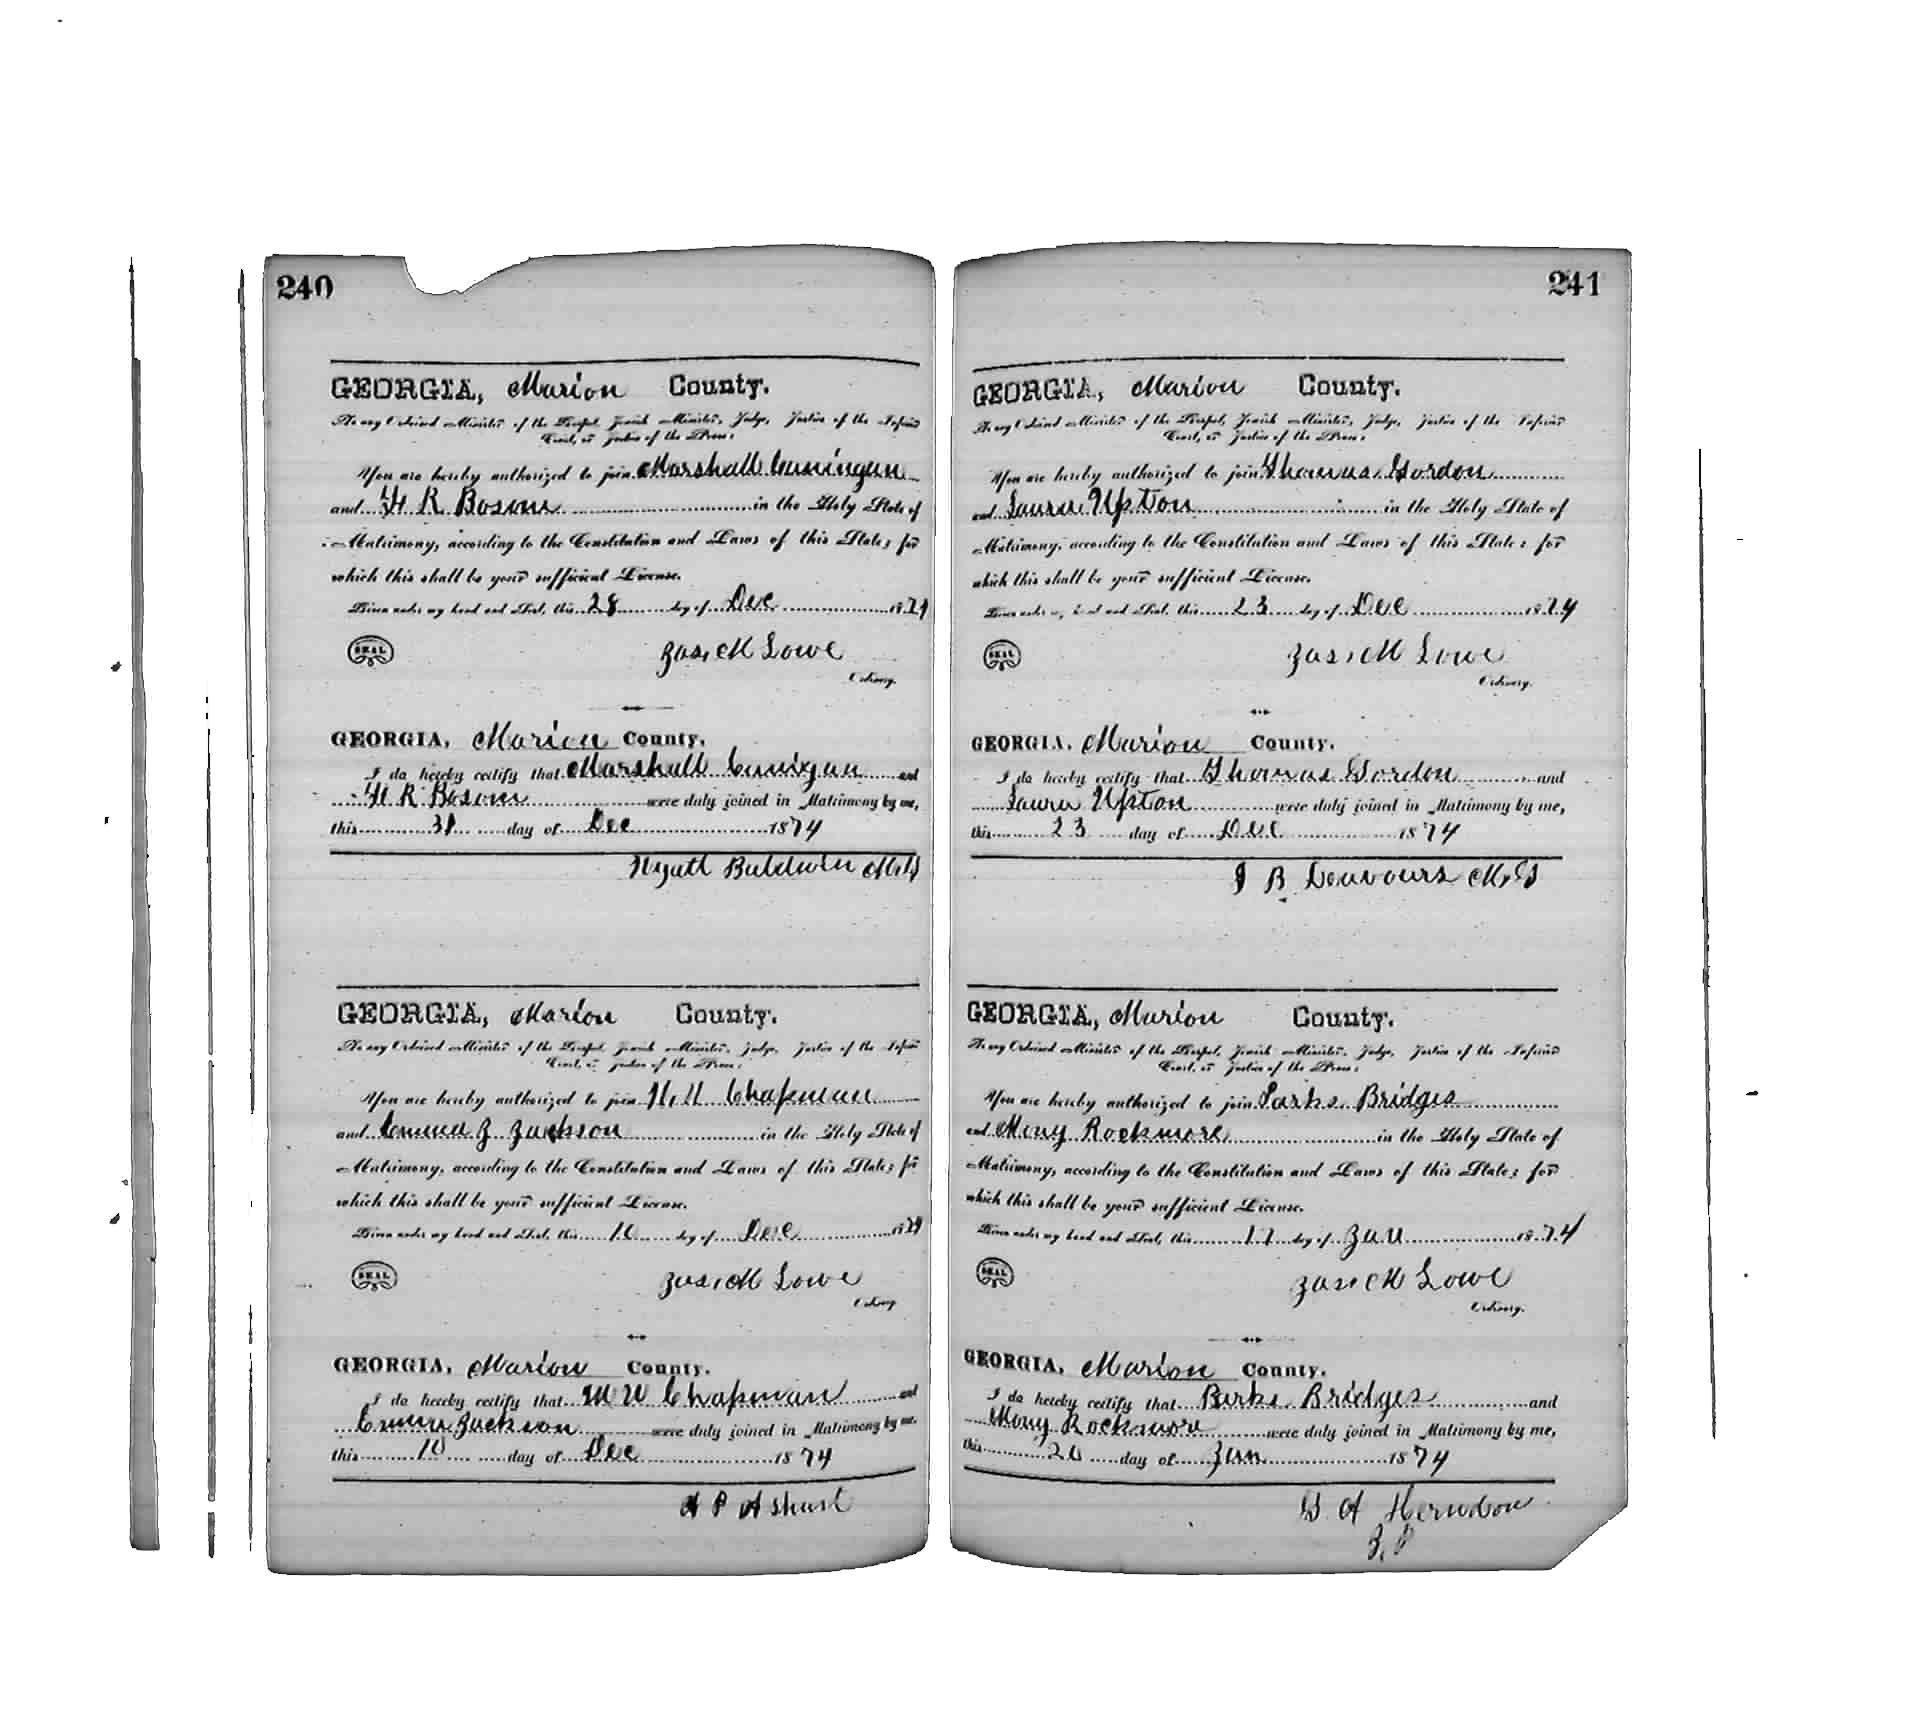 240
GEORGIA, Marion County.
To any Ordained Minister of the Gospel, Jewish Minister, Judge, Justice of the Inferior
Court, or Justice of the Peace:
You are hereby authorized to join Marshall
and R in the Holy State of
Matrimony, according to the Constitution and Laws of this State; for
which this shall be your sufficient License.
Given under my hand and Seal, this 28 day of Dec 1874
SEAL
Jas. M Lowe
Ordinary.
GEORGIA, Marion County.
I do hereby certify that Marshall and
R were duly joined in Matrimony by me,
this 31 day of Dec 1874
Wyatt Baldwin M.G
GEORGIA, Marion County.
To any Ordained Minister of the Gospel, Jewish Minister, Judge, Justice of the Inferior
Court, or Justice of the Peace:
You are hereby authorized to join Chapman
and Emma J Jackson in the Holy State of
Matrimony, according to the Constitution and Laws of this State; for
which this shall be your sufficient License.
Given under my hand and Seal, this 10 day of Dec 1874
SEAL
Jas. M Lowe
Ordinary
GEORGIA, Marion County.
I do hereby certify that W W Chapman and
Emma Jackson were duly joined in Matrimony by me.
this 10 day of Dec 1874
A P
241
GEORGIA, Marion County.
To any Ordained Minister of the Gospel, Jewish Minister, Judge, Justice of the Inferior
Court, or Justice of the Peace:
You are hereby authorized to join Thomas Gordon
and Laura Upton in the Holy State of
Matrimony, according to the Constitution and Laws of this State; for
which this shall be your sufficient License.
Given under my hand and Seal, this 23 day of Dec 1874
SEAL
Jas. M Lowe
Ordinary.
GEORGIA, Marion County.
I do hereby certify that Thomas Gordon and
Laura Upton were duly joined in Matrimony by me,
this 23 day of Dec 1874
B M.G
GEORGIA, Marion County.
To any Ordained Minister of the Gospel, Jewish Minister, Judge, Justice of the Inferior
Court, or Justice of the Peace:
You are hereby authorized to join Bridges
and Rockmore in the Holy State of
Matrimony, according to the Constitution and Laws of this State; for
which this shall be your sufficient License.
Given under my hand and Seal, this 17 day of Jan 1874
SEAL
Jas. M Lowe
Ordinary.
GEORGIA, Marion County.
I do hereby certify that Bridges and
Rockmore were duly joined in Matrimony by me,
this 20 day of Jan 1874
B A Herndon
J. P